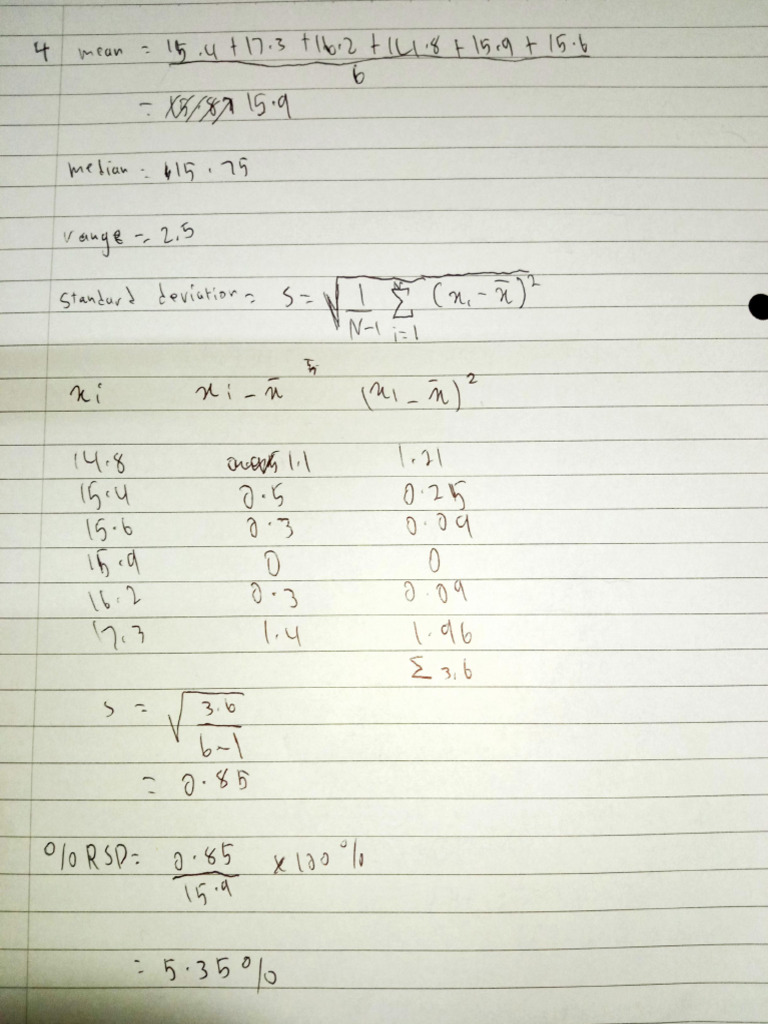 4 mean = 15.4 + 17.3 + 16.2 + 14.8 + 15.9 + 15.6
6
= 15.9
median = 15.75
range = 2.5
standard deviation = S = √ 1 N Σ (xi - x̄)²
N-1 i=1
xi xi - x̄ (xi - x̄)²
14.8 1.1 1.21
15.4 0.5 0.25
15.6 0.3 0.09
15.9 0 0
16.2 0.3 0.09
17.3 1.4 1.96
Σ 3.6
s = √ 3.6
6-1
= 0.85
% RSD = 0.85 x 100 %
15.9
= 5.35 %